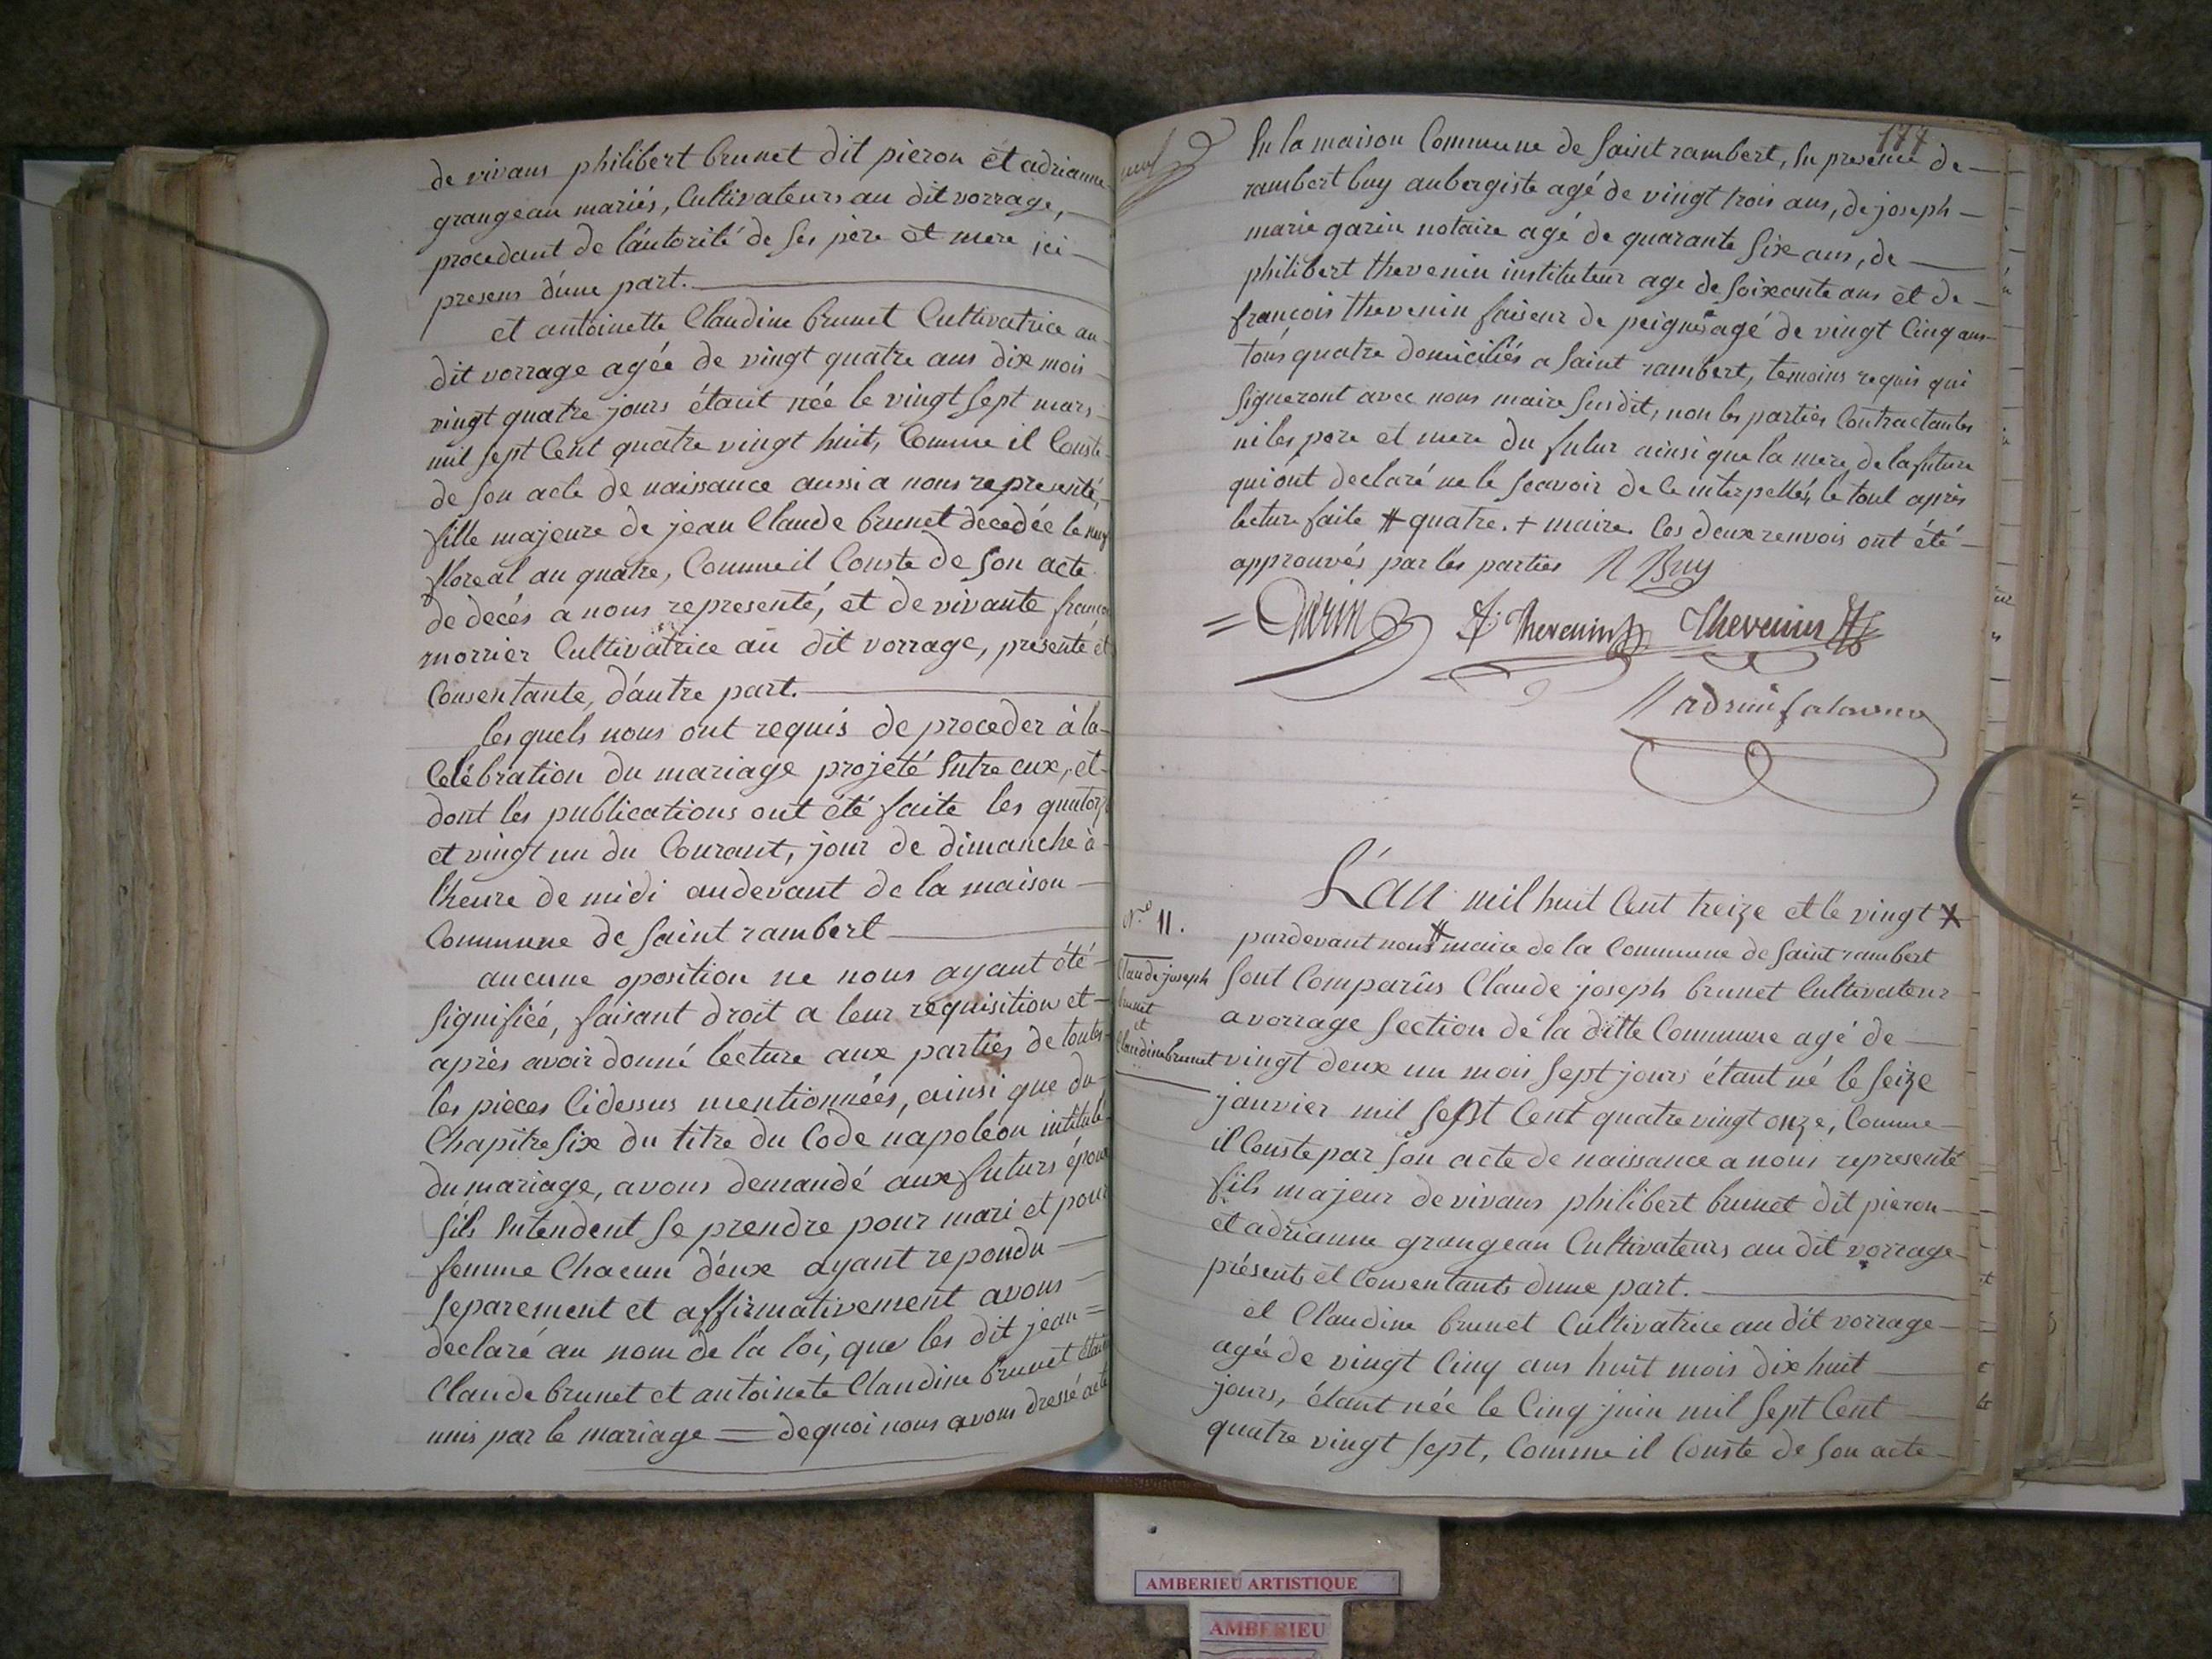 de vivans philibert brunet dit pieron et adrianne
grangeau mariés, Cultivateurs au dit vorrage,
procedant de l'autorité de ses père et mere ici
presens d'une part.
et antoinette Claudine brunet Cultivatrice au
dit vorrage agée de vingt quatre ans dix mois
vingt quatre jours étant née le vingt sept mars
mil sept Cent quatre vingt huit, Comme il Conste
de son acte de naissance aussi a nous representé,
fille majeure de jean Claude brunet decedée le neuf
floreal an quatre, Comme il Conste de son acte
de decés a nous representé, et de vivante françoi
morrier Cultivatrice au dit vorrage, presente et
Consentante, d'autre part.
les quels nous ont requis de proceder à la
Celébration du mariage projeté Entre eux, et
dont les publications ont été faite les quatorz
et vingt un du Courant, jour de dimanche à
l'heure de midi audevant de la maison
Commune de saint rambert
aucune oposition ne nous ayant été
signifiée, faisant droit a leur requisition et
après avoir donné lecture aux parties de toutes
les pieces Cidessus mentionnées, ainsi que du
Chapitre six du titre du Code napoléon intitulé
du mariage, avons demandé aux futurs époux
s'ils Entendent se prendre pour mari et pour
femme Chacun d'eux ayant repondu
separement et affirmativement avons
declaré au nom de la loi, que les dit jean =
Claude brunet et antoinete Claudine brunet étaient
unis par le mariage = dequoi nous avons dressé acte
177
En la maison Commune de Saint rambert, En presence de
rambert buy aubergiste agé de vingt trois ans, de joseph
marie garin notaire agé de quarante six ans, de
philibert thevenin instituteur age de soixante ans et de
françois thevenin faiseur de peignes agé de vingt Cinq ans
tous quatre domiciliés a Saint rambert, temoins requis qui
signeront avec nous maire susdit, non les parties Contractantes
ni les pere et mere du futur ainsi que la mere de la future
qui ont declaré ne le scavoir de ce interpellés, le tout après
lecture faite # quatre. + maire. les deux renvois ont été
approuvés par les parties R Buy
= Garin f. Thevenin Thevenin
L'an mil huit Cent treize et le vingt X
N.o 11.
pardevant nous # maire de la Commune de Saint rambert
Claude joseph
brunet
et
Claudine brunet
sont Comparûs Claude joseph brunet Cultivateur
a vorrage section de la ditte Commune agé de
vingt deux un mois sept jours étant né le seize
janvier mil sept Cent quatre vingt onze, Comme
il Conste par son acte de naissance a nous representé
fils majeur de vivans philibert brunet dit pieron
et adrianne grangeau Cultivateurs au dit vorrage
présents et Consentants d'une part.
et Claudine brunet Cultivatrice au dit vorrage
agée de vingt Cinq ans huit mois dix huit
jours, étant née le Cinq juin mil sept Cent
quatre vingt sept, Comme il Conste de son acte
AMBERIEU ARTISTIQUE
AMBERIEU